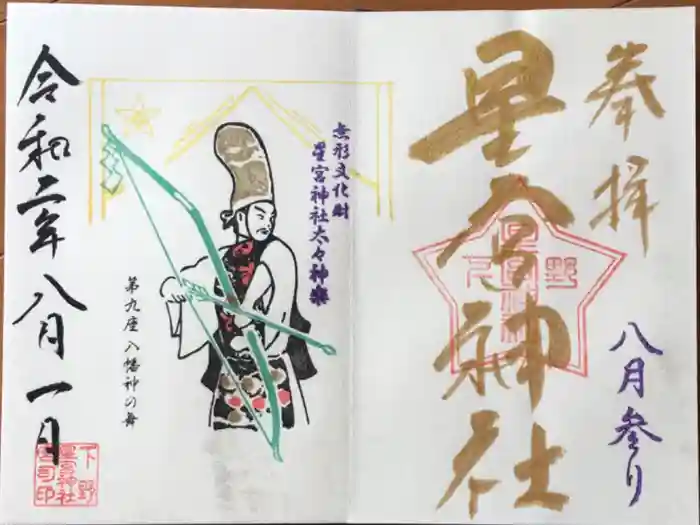 奉拝
星宮神社
八月参り
無形文化財
星宮神社太々神楽
第九座 八幡神の舞
令和二年八月一日
下野
星宮神社
宮司印